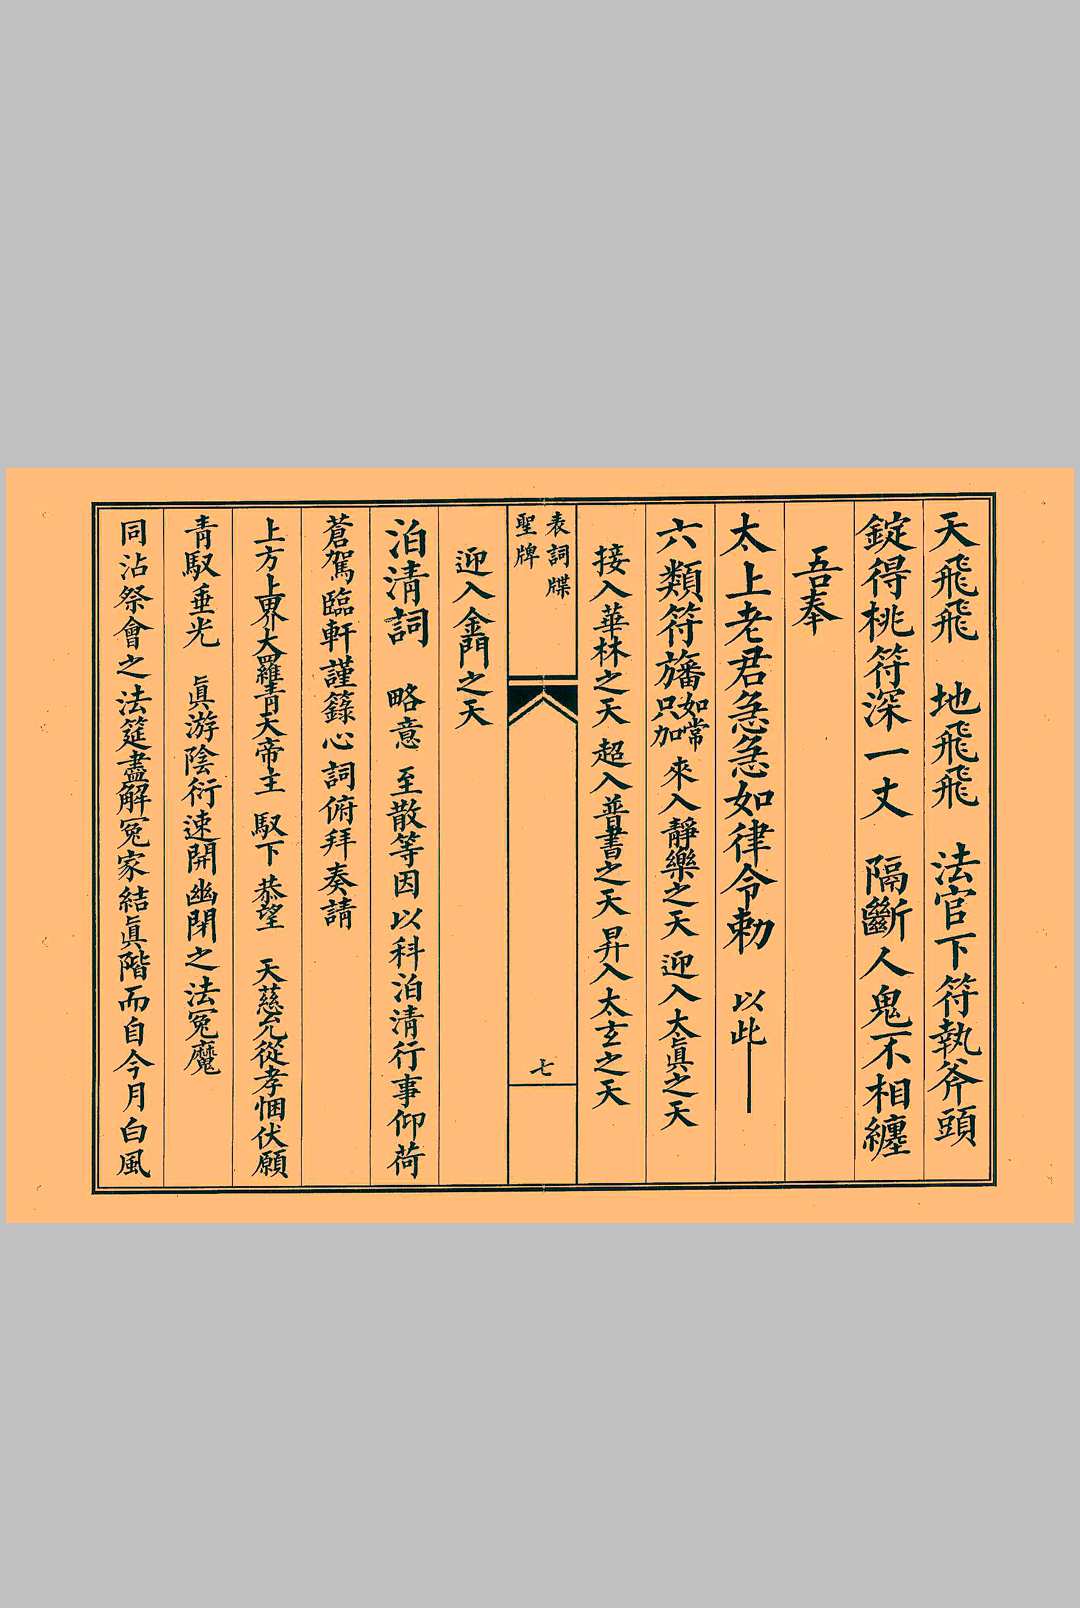 天飛飛　地飛飛　法官下符執斧頭
錠得桃符深一丈　隔斷人鬼不相纏
吾奉
太上老君急急如律令勅　以此
六類符旛如常只加　來入靜樂之天　迎入太眞之天
接入華林之天　超入普書之天　昇入太玄之天
表詞牒
聖牌
七
迎入金門之天
泊清詞　略意　至散等因以科泊清行事仰荷
蒼駕臨軒謹籙心詞俯拜奏請
上方上界大羅青天帝主　馭下　恭望　天慈允從孝悃伏願
青馭垂光　眞游陰衍速開幽閉之法冤魔
同沾祭會之法筵盡解冤家結眞階而自今月白風